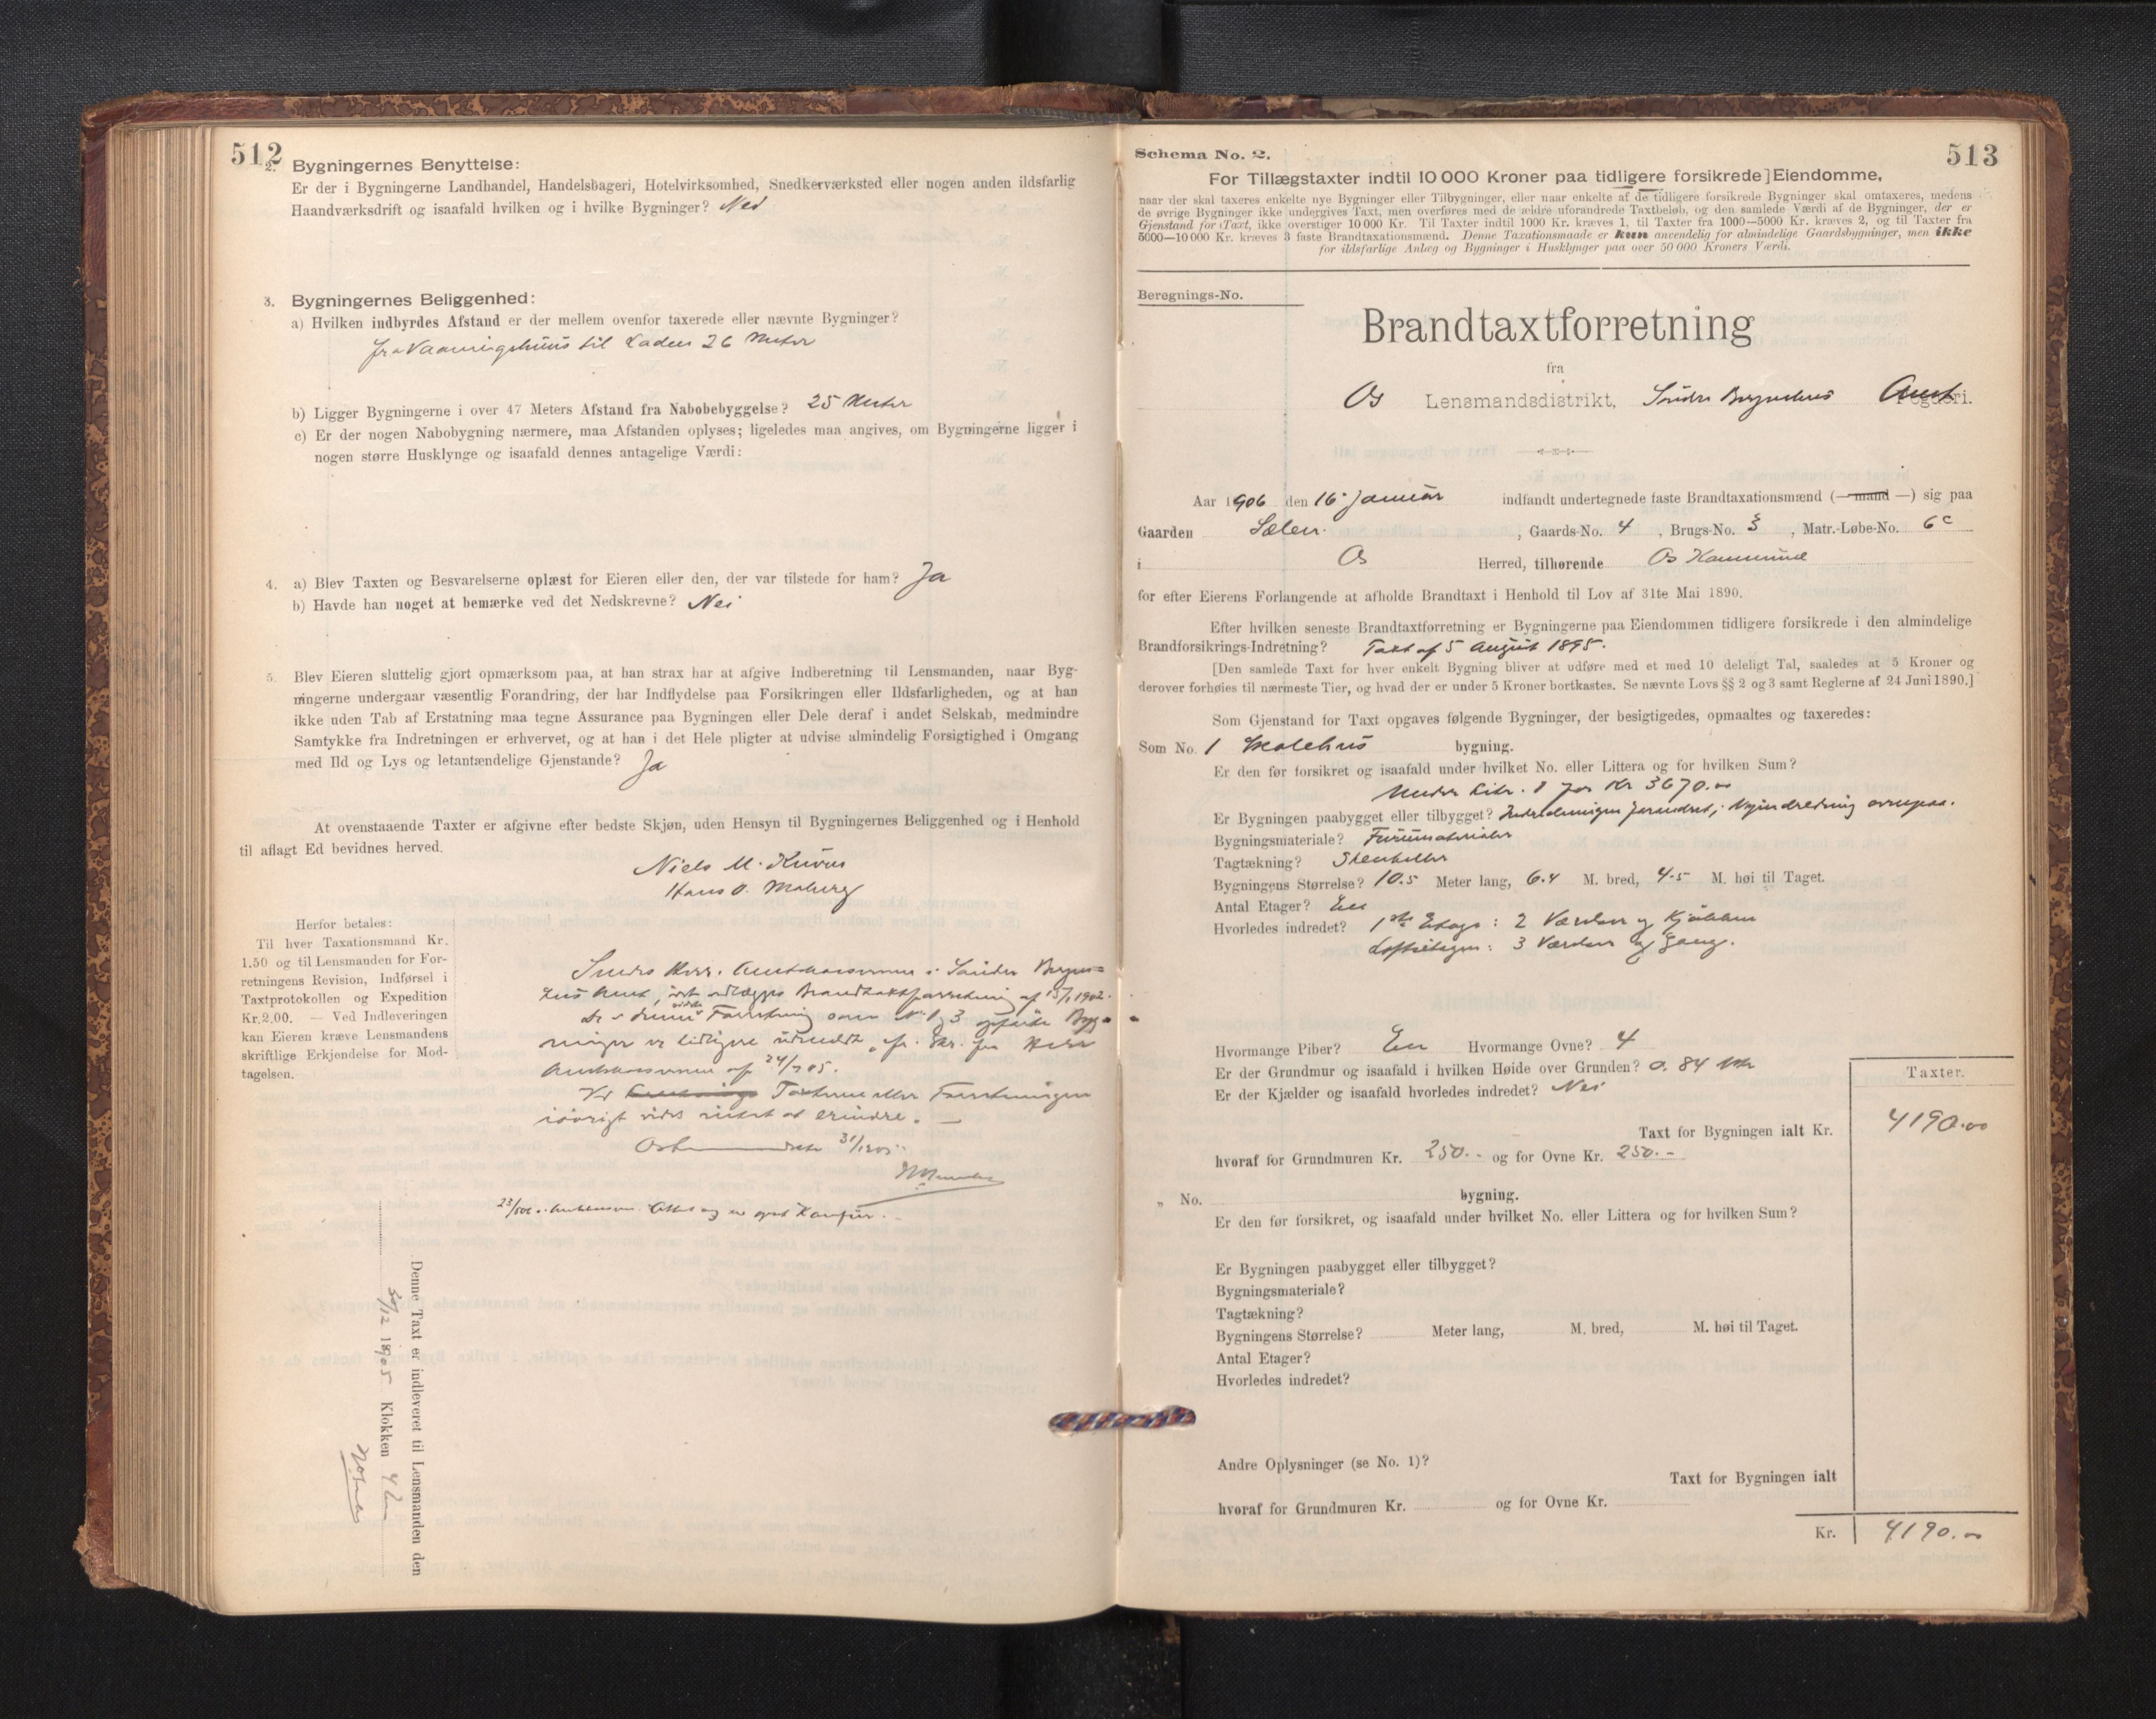 512
2. Bygningernes Benyttelse:
Er der i Bygningerne Landhandel, Handelsbageri, Hotelvirksomhed, Snedkerværksted eller nogen anden ildsfarlig
Haandværksdrift og isaafald hvilken og i hvilke Bygninger? Nei
3. Bygningernes Beliggenhed:
a) Hvilken indbyrdes Afstand er der mellem ovenfor taxerede eller nævnte Bygninger?
fra Vaaningshuus til Laden 26 Meter
b) Ligger Bygningerne i over 47 Meters Afstand fra Nabobebyggelse? 25 Meter
c) Er der nogen Nabobygning nærmere, maa Afstanden oplyses; ligeledes maa angives, om Bygningerne ligger i
nogen større Husklynge og isaafald dennes antagelige Værdi:
4. a) Blev Taxten og Besvarelserne oplæst for Eieren eller den, der var tilstede for ham? Ja
b) Havde han noget at bemærke ved det Nedskrevne? Nei
5. Blev Eieren sluttelig gjort opmærksom paa, at han strax har at afgive Indberetning til Lensmanden, naar Byg-
ningerne undergaar væsentlig Forandring, der har Indflydelse paa Forsikringen eller Ildsfarligheden, og at han
ikke uden Tab af Erstatning maa tegne Assurance paa Bygningen eller Dele deraf i andet Selskab, medmindre
Samtykke fra Indretningen er erhvervet, og at han i det Hele pligter at udvise almindelig Forsigtighed i Omgang
med Ild og Lys og letantændelige Gjenstande? Ja
At ovenstaaende Taxter er afgivne efter bedste Skjøn, uden Hensyn til Bygningernes Beliggenhed og i Henhold
til aflagt Ed bevidnes herved.
Niels M.
Hans O. Moberg
Herfor betales:
Til hver Taxationsmand Kr.
1.50 og til Lensmanden for For-
retningens Revision, Indførsel i
Taxtprotokollen og Expedition
Kr. 2.00. — Ved Indleveringen
kan Eieren kræve Lensmandens
skriftlige Erkjendelse for Mod-
tagelsen.
Sendes Herr. Amtskasserer i Søndre Bergen-
hus Amt, Brandtaxtforretning af 15/1 1902.
De i denne Forretning som No 1 og 3 opførte Byg-
ninger er tidligere udmeldt, cfr. Skr. fra Herr
Amtskasserer af 24/
Taxterne eller Forretningen
iøvrigt vides intet at erindre. —
31/1205
Denne Taxt er indleveret til Lensmanden den
30/12 1905 Klokken 4
Schema No. 2.
513
For Tillægstaxter indtil 10 000 Kroner paa tidligere forsikrede] Eiendomme,
naar der skal taxeres enkelte nye Bygninger eller Tilbygninger, eller naar enkelte af de tidligere forsikrede Bygninger skal omtaxeres, medens
de øvrige Bygninger ikke undergives Taxt, men overføres med de ældre uforandrede Taxtbeløb, og den samlede Værdi af de Bygninger, der er
Gjenstand for Taxt, ikke overstiger 10 000 Kr. Til Taxter indtil 1000 Kr. kræves 1, til Taxter fra 1000—5000 Kr. kræves 2, og til Taxter fra
5000—10 000 Kr. kræves 3 faste Brandtaxationsmænd. Denne Taxationsmaade er kun anvendelig for almindelige Gaardsbygninger, men ikke
for ildsfarlige Anlæg og Bygninger i Husklynger paa over 50 000 Kroners Værdi.
Beregnings-No.
Brandtaxtforretning
fra
Os Lensmandsdistrikt, Søndre Bergenhus Amt Fogderi.
Aar 1906 den 16 Januar indfandt undertegnede faste Brandtaxationsmænd (—mand —) sig paa
Gaarden Sælen , Gaards-No. 4 , Brugs-No. 3 , Matr.-Løbe-No. 6c
i Os Herred, tilhørende Os Kommune
for efter Eierens Forlangende at afholde Brandtaxt i Henhold til Lov af 31te Mai 1890.
Efter hvilken seneste Brandtaxtforretning er Bygningerne paa Eiendommen tidligere forsikrede i den almindelige
Brandforsikrings-Indretning? Taxt af 5 August 1895.
[Den samlede Taxt for hver enkelt Bygning bliver at udføre med et med 10 deleligt Tal, saaledes at 5 Kroner og
derover forhøies til nærmeste Tier, og hvad der er under 5 Kroner bortkastes. Se nævnte Lovs §§ 2 og 3 samt Reglerne af 24 Juni 1890.]
Som Gjenstand for Taxt opgaves følgende Bygninger, der besigtigedes, opmaaltes og taxeredes:
Som No. 1 Skolehus bygning.
Er den før forsikret og isaafald under hvilket No. eller Littera og for hvilken Sum?
Under Litr. 1 for Kr 3670.00
Er Bygningen paabygget eller tilbygget? Indredningen forandret; Nyindredning ovenpaa.
Bygningsmateriale? Furumaterialer
Tagtækning? Stenheller
Bygningens Størrelse? 10.5 Meter lang, 6.4 M. bred, 4.5 M. høi til Taget.
Antal Etager? En
Hvorledes indredet? 1ste Etage: 2 Værelser og Kjøkken
Loftsetagen: 3 Værelser og Gang.
Hvormange Piber? En Hvormange Ovne? 4
Er der Grundmur og isaafald i hvilken Høide over Grunden? 0.84 Mtr
Er der Kjælder og isaafald hvorledes indredet? Nei
Taxter.
Taxt for Bygningen ialt Kr. 4190.00
hvoraf for Grundmuren Kr. 250.- og for Ovne Kr. 250.-
„ No. bygning.
Er den før forsikret, og isaafald under hvilket No. eller Littera og for hvilken Sum?
Er Bygningen paabygget eller tilbygget?
Bygningsmateriale?
Tagtækning?
Bygningens Størrelse? Meter lang, M. bred, M. høi til Taget.
Antal Etager?
Hvorledes indredet?
Andre Oplysninger (se No. 1)?
Taxt for Bygningen ialt
hvoraf for Grundmuren Kr. og for Ovne Kr.
Kr. 4190.00